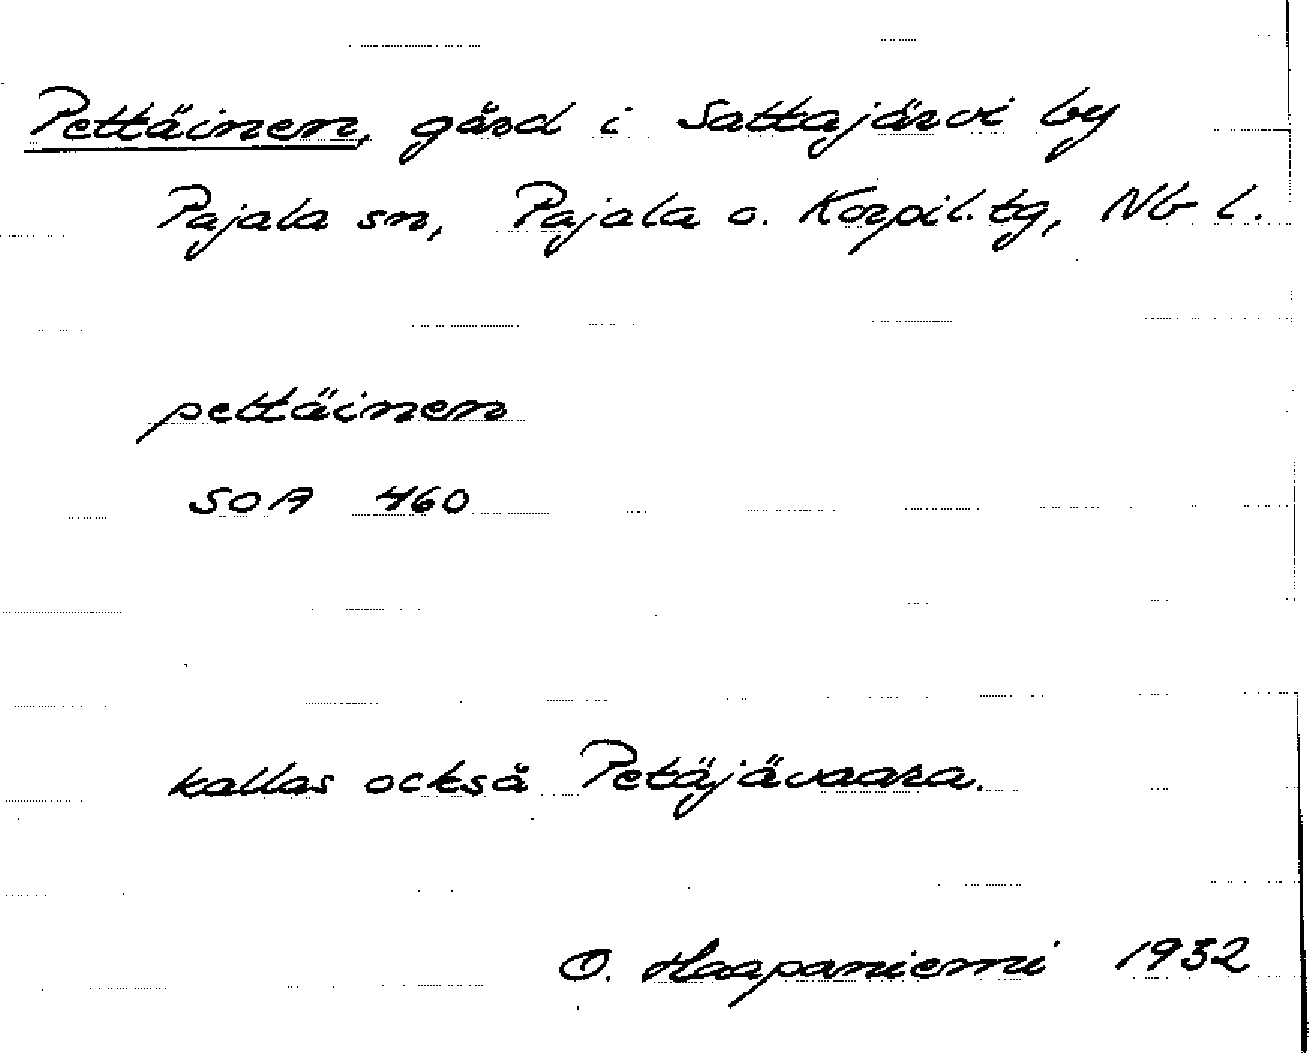 Pettäinen, gård i Sattajärvi by
Pajala sn, Pajala o. Korpil. tg, Nb l.
pettäinen
SOA 460
kallas också Petäjävaara.
O. Haapaniemi 1932